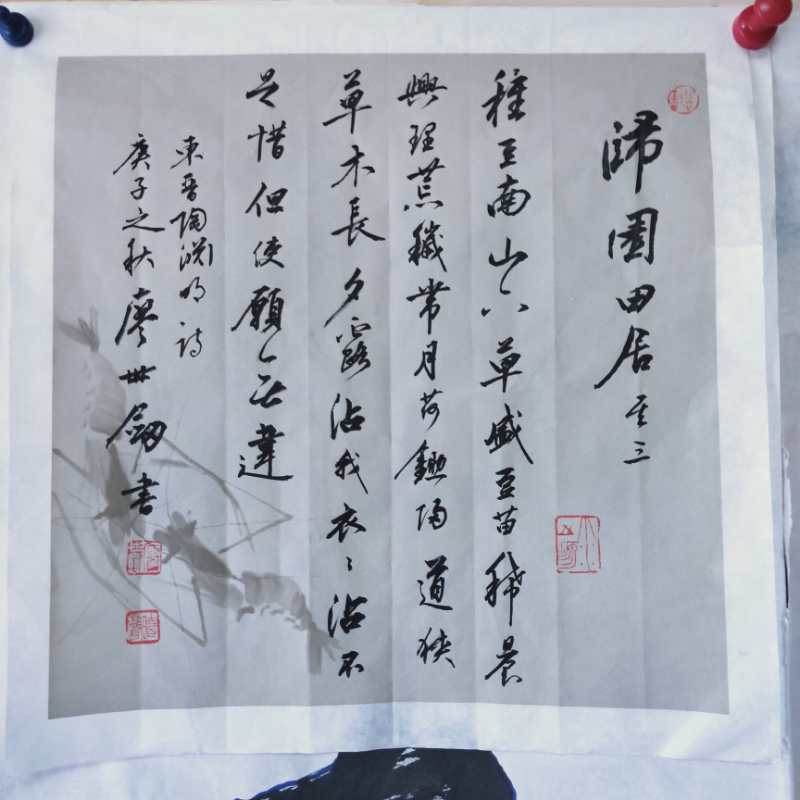 歸園田居 其三
種豆南山下草盛豆苗稀晨
興理荒穢帶月荷鋤歸道狹
草木長夕露沾我衣〻沾不
足惜但使願無違
東晉陶淵明詩
庚子之秋廖世劍書